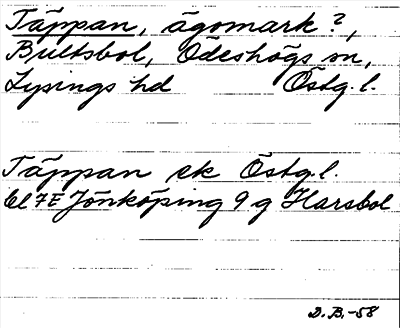 Täppan, ägomark?,
Bultsbol, Ödeshögs sn,
Lysings hd Östg.l.
Täppan ek Östg.l.
bl 7E Jönköping 9 g Harsbol
D.B.-58